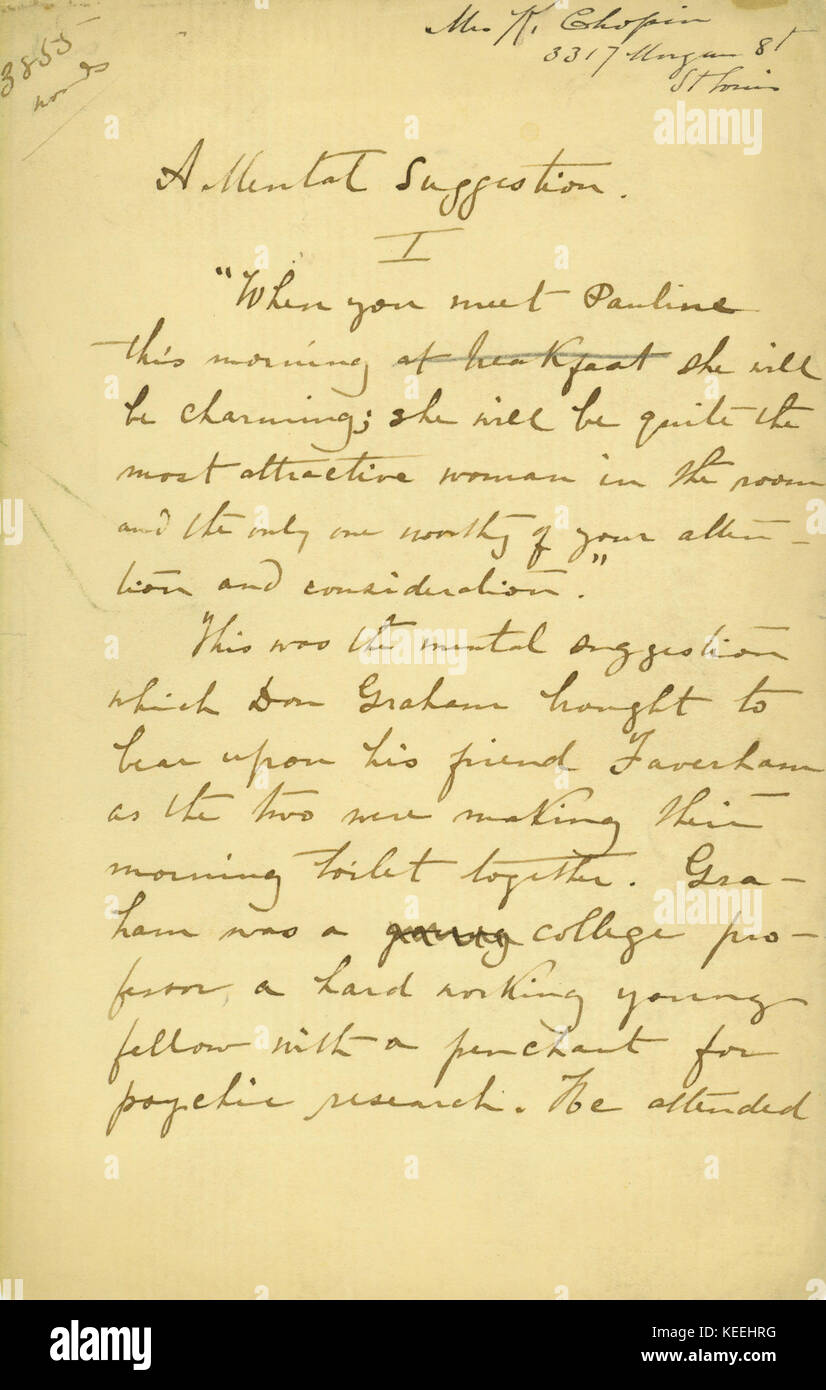 Mrs K. Chopin
3317 Morgan St
St Louis
3855
words
A Mental Suggestion.
I
"When you meet Pauline
this morning at breakfast she will
be charming; she will be quite the
most attractive woman in the room
and the only one worthy of your atten-
tion and consideration."
This was the mental suggestion
which Don Graham brought to
bear upon his friend Faverham
as the two were making their
morning toilet together. Gra-
ham was a young college pro-
fessor, a hard working young
fellow with a penchant for
psychic research. He attended
alamy
Image ID: KEEHRG
www.alamy.com